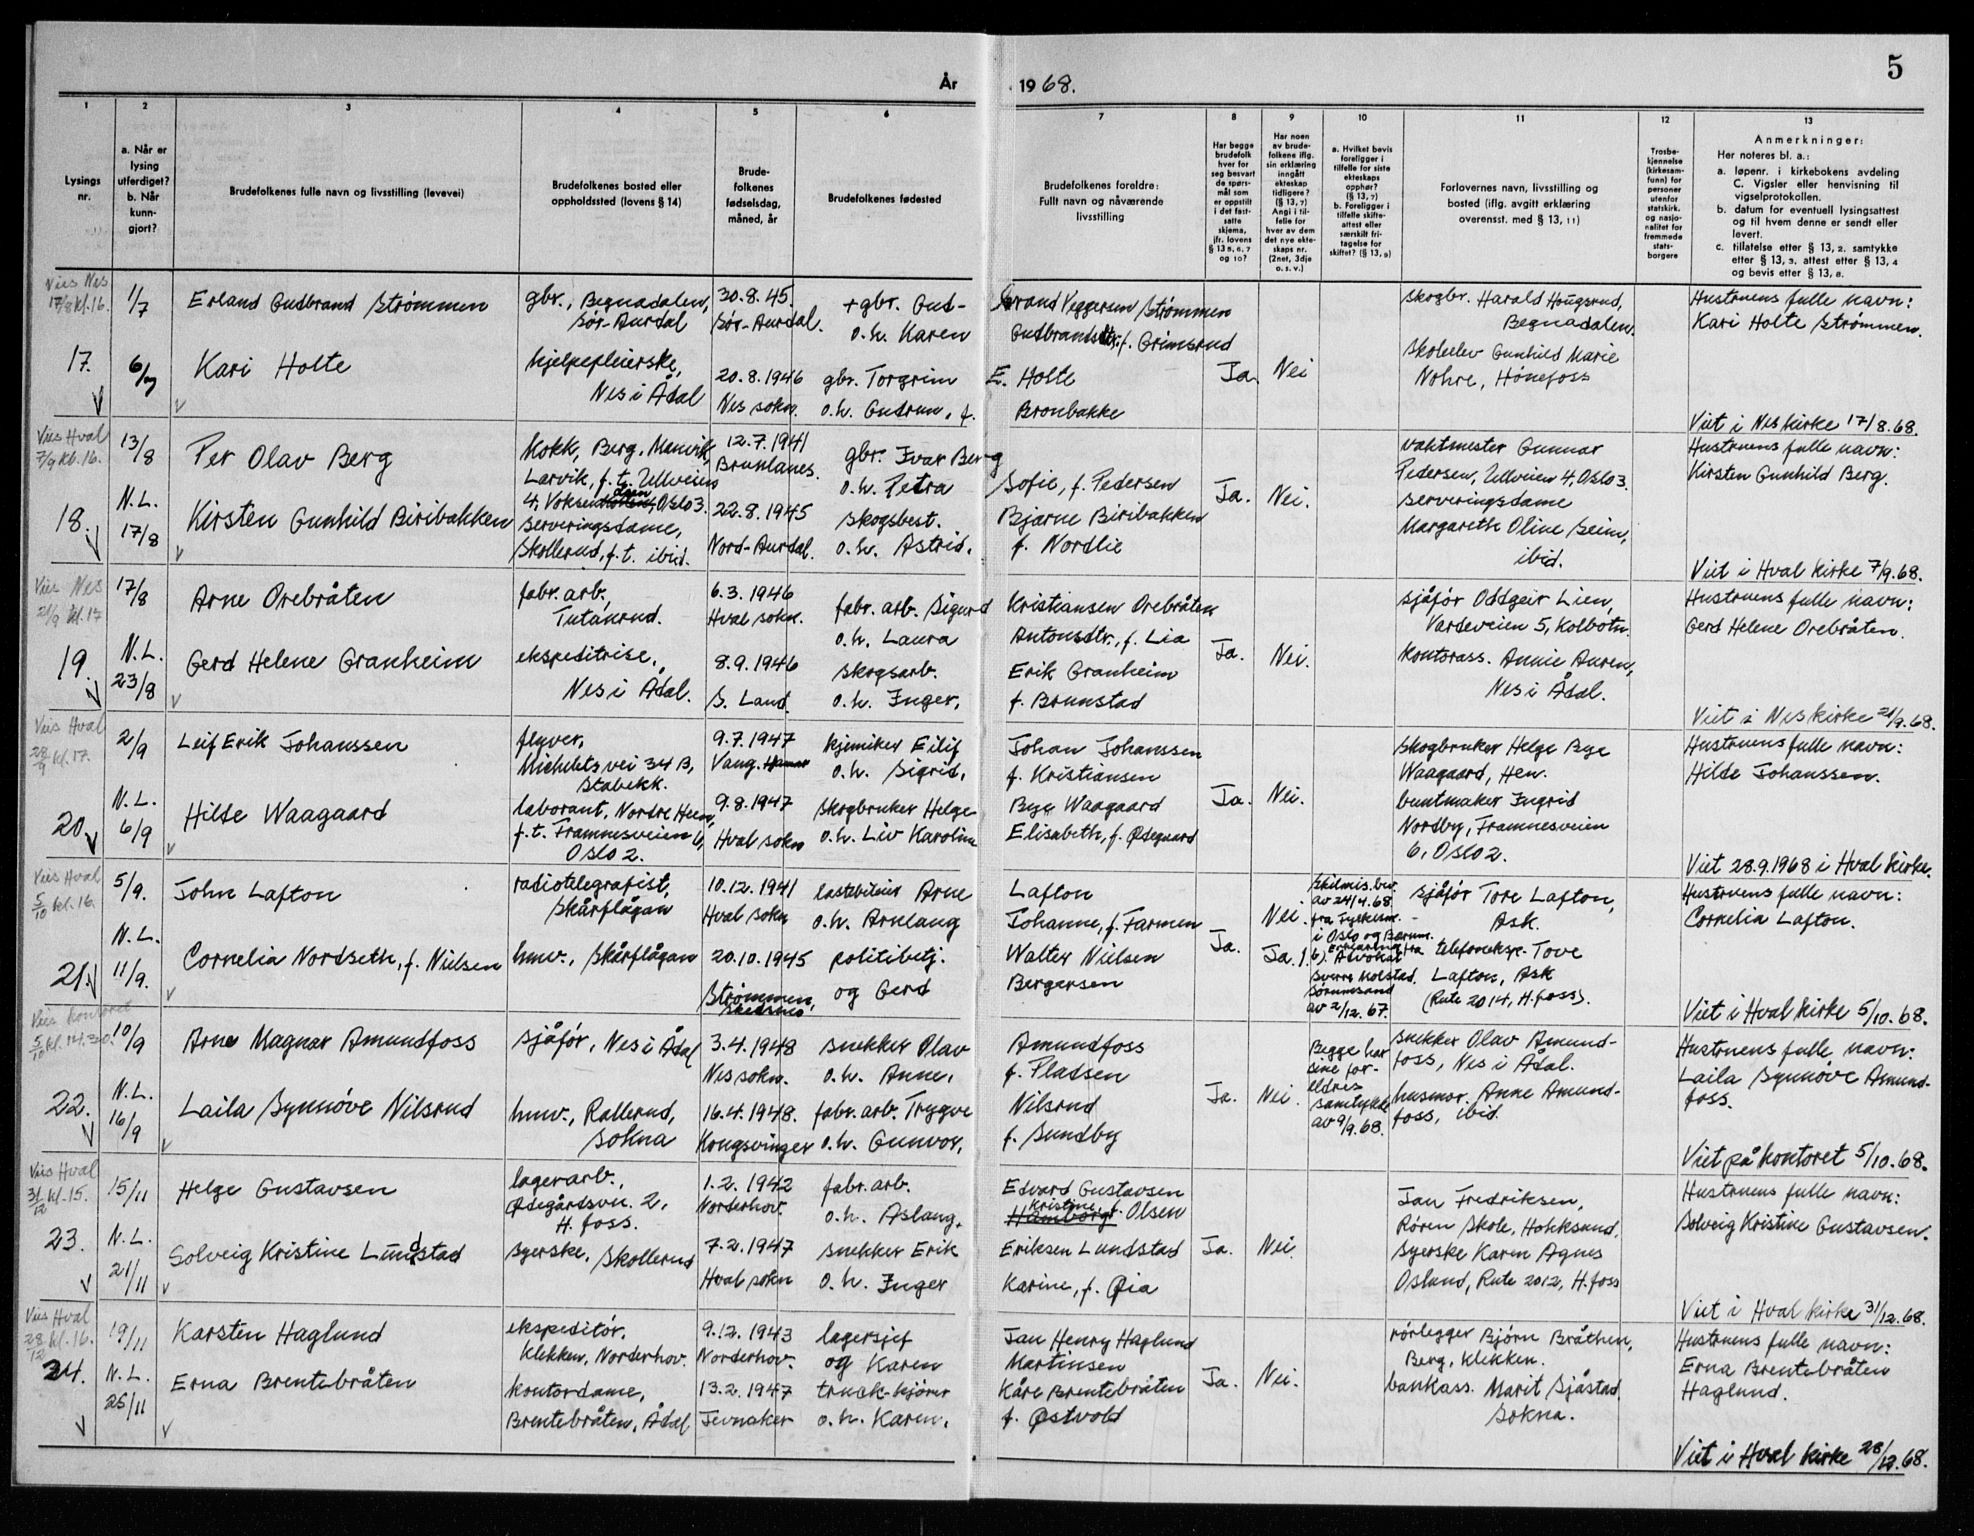 År 1968. 5
1 2 3 4 5 6 7 8 9 10 11 12 13
Lysings
nr.
a. Når er
lysing
utferdiget?
b. Når
kunn-
gjort?
Brudefolkenes fulle navn og livsstilling (levevei)
Brudefolkenes bosted eller
oppholdssted (lovens § 14)
Brude-
folkenes
fødselsdag,
måned, år
Brudefolkenes fødested
Brudefolkenes foreldre:
Fullt navn og nåværende
livsstilling
Har begge
brudefolk
hver for
seg besvart
de spørs-
mål som
er oppstilt
i det fast-
satte
skjema,
jfr. lovens
§ 13 5, 6, 7
og 10?
Har noen
av brude-
folkene iflg.
sin erklæring
inngått
ekteskap
tidligere?
(§ 13, 7)
Angi i til-
felle for
hver av dem
det nye ekte-
skaps nr.
(2net, 3dje
o. s. v.)
a. Hvilket bevis
foreligger i
tilfelle for siste
ekteskaps
opphør?
(§ 13, 7)
b. Foreligger i
tilfelle skifte-
attest eller
særskilt fri-
tagelse for
skiftet? (§ 13, 9)
Forlovernes navn, livsstilling og
bosted (iflg. avgitt erklæring
overensst. med § 13, 11)
Trosbe-
kjennelse
(kirkesam-
funn) for
personer
utenfor
statskirk.
og nasjo-
nalitet for
fremmede
stats-
borgere
Anmerkninger:
Her noteres bl. a.:
a. løpenr. i kirkebokens avdeling
C. Vigsler eller henvisning til
vigselprotokollen.
b. datum for eventuell lysingsattest
og til hvem denne er sendt eller
levert.
c. tillatelse etter § 13, 2. samtykke
etter § 13, 3, attest etter § 13, 4
og bevis etter § 13, 8.
Vies Nes
17/8 kl. 16.
17.
1/7
6/7
Erland Gudbrand Strømmen
Kari Holte
gbr., Begnadalen,
Sør-Aurdal
hjelpepleierske,
Nes i Ådal
30.8.45.
Sør-Aurdal.
20.8.1946
Nes sokn.
+ gbr. Gud-
o.h. Karen
gbr. Torgrim
o.h. Gudrun, f.
brand Veggersen Strømmen
Gudbrandsdtr. f. Grimsrud
E. Holte
Bronbakke
Ja.
Nei
skogbr. Harald Haugsrud,
Begnadalen.
Skoleelev Gunhild Marie
Nohre, Hønefoss
Hustruens fulle navn:
Kari Holte Strømmen.
Viet i Nes kirke 17/8.68.
Vies Hval
7/9 kl. 16.
18.
13/8
N.L.
17/8
Per Olav Berg
Kirsten Gunhild Biribakken
Kokk, Berg, Manvik,
Larvik, f.t. Ullveien
4, Voksenåsen Oslo 3.
serveringsdame,
Skollerud, f.t. ibid.
12.7.1941
Brunlanes.
22.8.1945
Nord-Aurdal.
gbr. Ivar Berg
o.h. Petra
skogsbest.
o.h. Astrid,
Sofie, f. Pedersen
Bjarne Biribakken
f. Nordlie
Ja.
Nei.
vaktmester Gunnar
Pedersen, Ullveien 4, Oslo 3.
serveringsdame
Margareth Oline Seim,
ibid.
Hustruens fulle navn:
Kirsten Gunhild Berg.
Viet i Hval kirke 7/9.68.
Vies Nes
21/9 kl. 17
19.
17/8
N.L.
23/8
Arne Orebråten
Gerd Helene Granheim
fabr. arb.,
Tutanrud.
ekspeditrise,
Nes i Ådal.
6.3.1946
Hval sokn.
8.9.1946
S. Land.
fabr. arb. Sigurd
o.h. Laura
skogsarb.
o.h. Inger,
Kristiansen Orebråten
Antonsdtr., f. Lia
Erik Granheim
f. Brunstad
Ja.
Nei.
sjåfør Oddgeir Lien,
Vardeveien 5, Kolbotn.
kontorass. Annie Auren,
Nes i Ådal.
Hustruens fulle navn:
Gerd Helene Orebråten.
Viet i Nes kirke 21/9.68.
Vies Hval
28/9 kl. 17.
20.
2/9
N.L.
6/9
Leif Erik Johanssen
Hilde Waagaard
flyver,
Michelets vei 34 B,
Stabekk.
laborant, Nordre Hen,
f.t. Framnesveien 6,
Oslo 2.
9.7.1947
Vang. Hamar
9.8.1947
Hval sokn
kjemiker Eilif
o.h. Sigrid,
skogbruker Helge
o.h. Liv Karoline
Johan Johanssen
f. Kristiansen
Bye Waagaard
Elisabeth, f. Ødegaard
Ja.
Nei.
skogbruker Helge Bye
Waagaard, Hen.
buntmaker Ingrid
Nordby, Framnesveien
6, Oslo 2.
Hustruens fulle navn:
Hilde Johanssen.
Viet 28.9.1968 i Hval kirke.
Vies Hval
5/10 kl. 16.
21.
5/9.
N.L.
11/9.
John Lafton
Cornelia Nordseth, f. Nielsen
radiotelegrafist,
Skårflågan
hmv., Skårflågan
10.12.1941
Hval sokn
20.10.1945
Strømmen,
Skedsmo
lastebileier Arne
o.h. Arnlaug
politibetj.
og Gerd
Lafton
Johanne, f. Farmen
Walter Nielsen
Bergersen
Ja.
Nei.
Ja. 1.
Skilmis. bev.
av 24/4.68
fra Fylkesm.
i Oslo og Bærum.
b). Erklæring fra
Advokat
Sverre Molstad,
Sørumsand
av 2/12.67.
sjåfør Tore Lafton,
Ask.
telefoneksp. Tove
Lafton, Ask
(Rute 2014, H.foss).
Hustruens fulle navn:
Cornelia Lafton.
Viet i Hval kirke 5/10.68.
Vies kontoret
5/10 kl. 14.30.
22.
10/9
N.L.
16/9
Arne Magnar Amundfoss
Laila Synnøve Nilsrud
sjåfør, Nes i Ådal
hmv., Rallerud,
Sokna
3.4.1948
Nes sokn.
16.4.1948.
Kongsvinger
snekker Olav
o.h. Anne,
fabr. arb. Trygve
o.h. Gunvor,
Amundfoss
f. Pladsen
Nilsrud
f. Sundby
Ja.
Nei.
Begge har
sine for-
eldres
samtykke
av 9/9.68.
snekker Olav Amund-
foss, Nes i Ådal.
husmor. Anne Amund-
foss, ibid.
Hustruens fulle navn:
Laila Synnøve Amund-
foss.
Viet på kontoret 5/10.68.
Vies Hval
31/12 kl. 15.
23.
15/11
N.L.
21/11
Helge Gustavsen
Solveig Kristine Lundstad
lagerarb.,
Ødegårdsvn. 2,
H. foss.
syerske, Skollerud
1.2.1942
Norderhov.
7.2.1947
Hval sokn
fabr. arb.
o.h. Aslaug,
snekker Erik
o.h. Inger
Edvard Gustavsen
Kristine, f.
Hamborg Olsen
Eriksen Lundstad
Karine, f. Øia
Ja.
Nei.
Jan Fredriksen,
Røren Skole, Hokksund,
syerske Karen Agnes
Osland, Rute 2012, H.foss
Hustruens fulle navn:
Solveig Kristine Gustavsen.
Viet i Hval kirke 31/12.68.
Vies Hval
28/12 kl. 16.
24.
19/11
N.L.
25/11
Karsten Haglund
Erna Brentebråten
ekspeditør,
Klekken, Norderhov.
kontordame,
Brentebråten, Ådal
9.12.1943
Norderhov.
13.2.1947
Jevnaker
lagersjef
og Karen
truck-kjører
o.h. Karen,
Jan Henry Haglund
Martinsen
Kåre Brentebråten
f. Østvold
Ja.
Nei.
rørlegger Bjørn Bråthen,
Berg, Klekken.
bankass. Marit Sjåstad
Sokna.
Hustruens fulle navn:
Erna Brentebråten
Haglund.
Viet i Hval kirke 28/12.68.